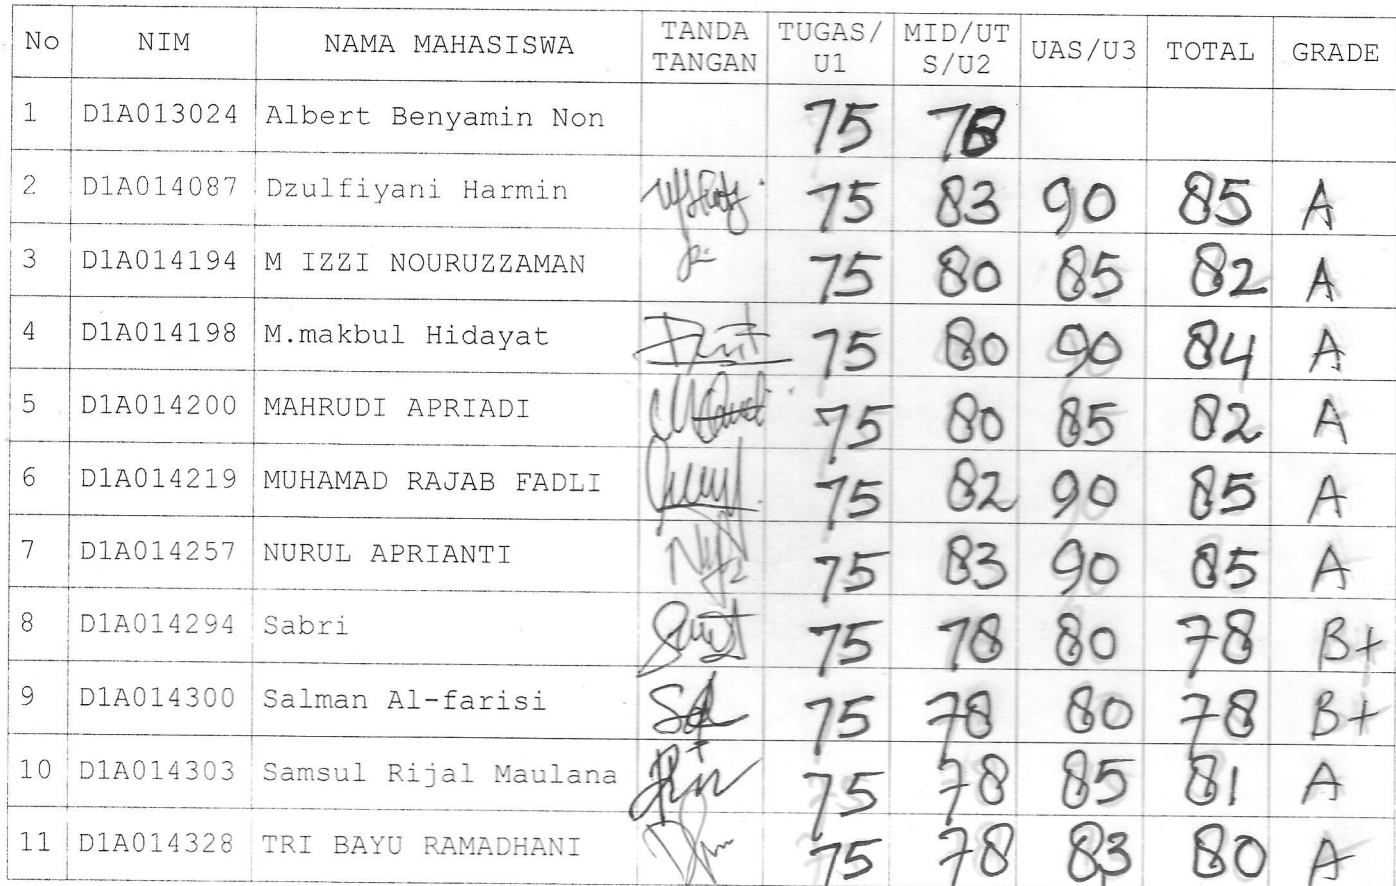 No NIM NAMA MAHASISWA TANDA TANGAN TUGAS/U1 MID/UTS/U2 UAS/U3 TOTAL GRADE
1 D1A013024 Albert Benyamin Non 75
2 D1A014087 Dzulfiyani Harmin 75 83 90 85 A
3 D1A014194 M IZZI NOURUZZAMAN 75 80 85 82 A
4 D1A014198 M.makbul Hidayat 75 80 90 84 A
5 D1A014200 MAHRUDI APRIADI 75 80 85 82 A
6 D1A014219 MUHAMAD RAJAB FADLI 75 82 90 85 A
7 D1A014257 NURUL APRIANTI 75 83 90 85 A
8 D1A014294 Sabri 75 78 80 78 B+
9 D1A014300 Salman Al-farisi 75 78 80 78 B+
10 D1A014303 Samsul Rijal Maulana 75 78 85 81 A
11 D1A014328 TRI BAYU RAMADHANI 75 78 83 80 A